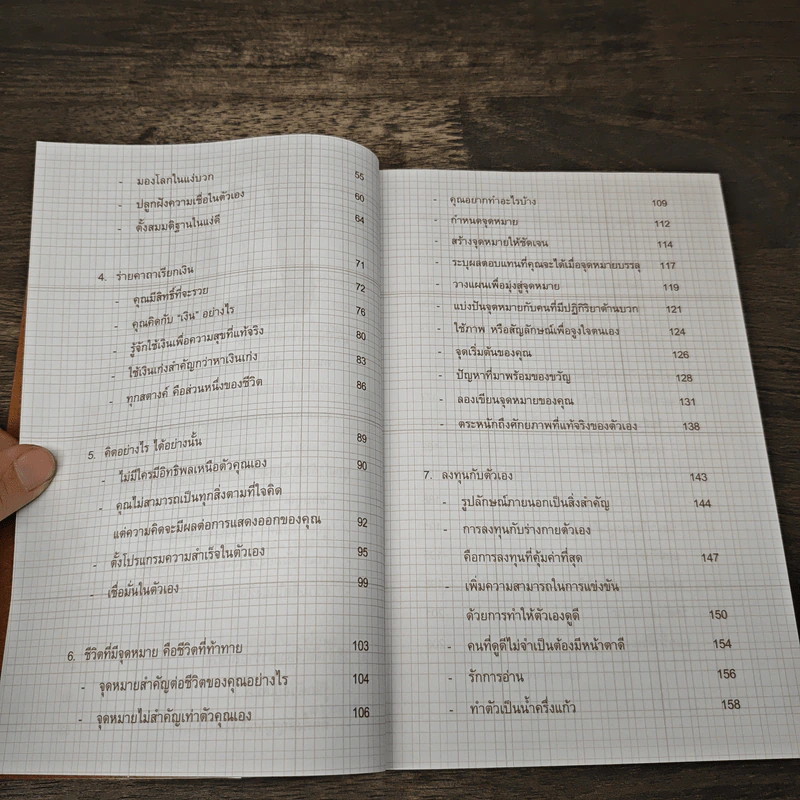 - มองโลกในแง่บวก 55
- ปลูกฝังความเชื่อในตัวเอง 60
- ตั้งสมมติฐานในแง่ดี 64
4. ร่ายคาถาเรียกเงิน 71
- คุณมีสิทธิ์ที่จะรวย 72
- คุณคิดกับ "เงิน" อย่างไร 76
- รู้จักใช้เงินเพื่อความสุขที่แท้จริง 80
- ใช้เงินเก่งสำคัญกว่าหาเงินเก่ง 83
- ทุกสตางค์ คือส่วนหนึ่งของชีวิต 86
5. คิดอย่างไร ได้อย่างนั้น 89
- ไม่มีใครมีอิทธิพลเหนือตัวคุณเอง 90
- คุณไม่สามารถเป็นทุกสิ่งตามที่ใจคิด
แต่ความคิดจะมีผลต่อการแสดงออกของคุณ 92
- ตั้งโปรแกรมความสำเร็จในตัวเอง 95
- เชื่อมั่นในตัวเอง 99
6. ชีวิตที่มีจุดหมาย คือชีวิตที่ท้าทาย 103
- จุดหมายสำคัญต่อชีวิตของคุณอย่างไร 104
- จุดหมายไม่สำคัญเท่าตัวคุณเอง 106
- คุณอยากทำอะไรบ้าง 109
- กำหนดจุดหมาย 112
- สร้างจุดหมายให้ชัดเจน 114
- ระบุผลตอบแทนที่คุณจะได้เมื่อจุดหมายบรรลุ 117
- วางแผนเพื่อมุ่งสู่จุดหมาย 119
- แบ่งปันจุดหมายกับคนที่มีปฏิกิริยาด้านบวก 121
- ใช้ภาพ หรือสัญลักษณ์เพื่อจูงใจตนเอง 124
- จุดเริ่มต้นของคุณ 126
- ปัญหาที่มาพร้อมของขวัญ 128
- ลองเขียนจุดหมายของคุณ 131
- ตระหนักถึงศักยภาพที่แท้จริงของตัวเอง 138
7. ลงทุนกับตัวเอง 143
- รูปลักษณ์ภายนอกเป็นสิ่งสำคัญ 144
- การลงทุนกับร่างกายตัวเอง
คือการลงทุนที่คุ้มค่าที่สุด 147
- เพิ่มความสามารถในการแข่งขัน
ด้วยการทำให้ตัวเองดูดี 150
- คนที่ดูดีไม่จำเป็นต้องมีหน้าตาดี 154
- รักการอ่าน 156
- ทำตัวเป็นน้ำครึ่งแก้ว 158